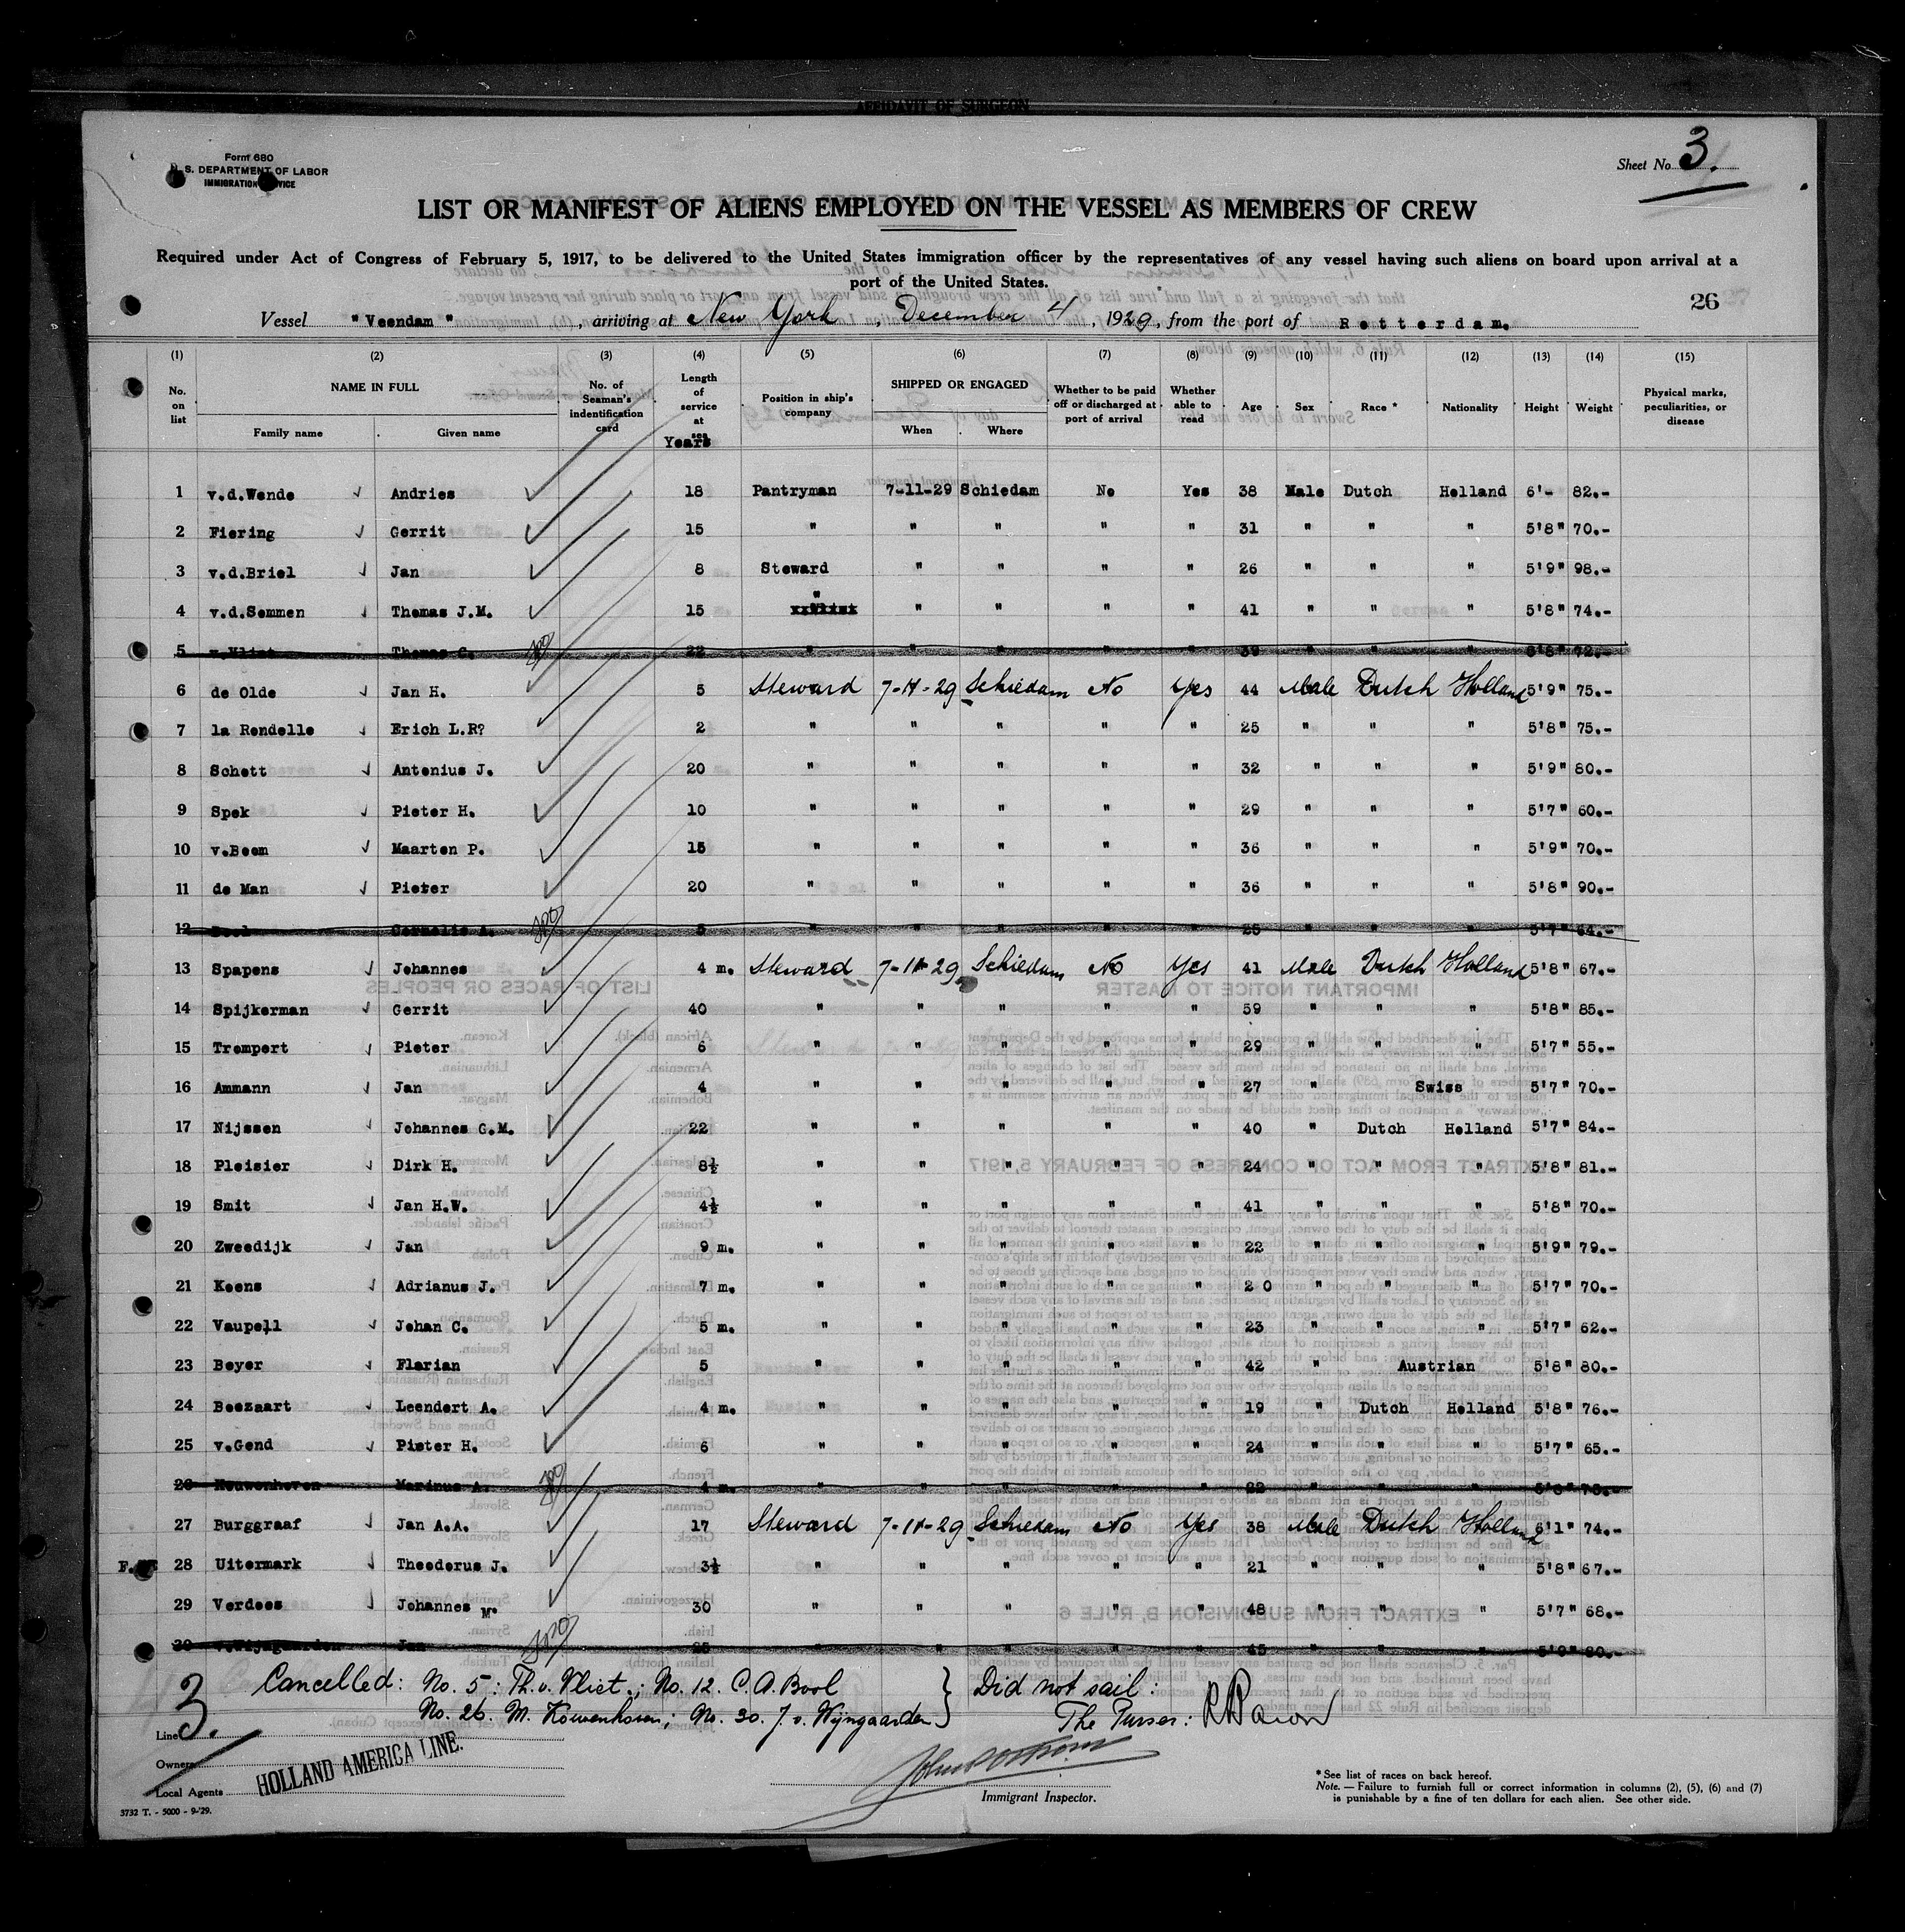 AFFIDAVIT OF SURGEON
Form 680
U. S. DEPARTMENT OF LABOR
IMMIGRATION SERVICE
Sheet No. 3.
LIST OR MANIFEST OF ALIENS EMPLOYED ON THE VESSEL AS MEMBERS OF CREW
Required under Act of Congress of February 5, 1917, to be delivered to the United States immigration officer by the representatives of any vessel having such aliens on board upon arrival at a
port of the United States.
26
Vessel "Veendam", arriving at New York, December 4, 1929, from the port of Rotterdam.
(1) (2) (3) (4) (5) (6) (7) (8) (9) (10) (11) (12) (13) (14) (15)
No. on list NAME IN FULL Family name Given name No. of Seaman's indentification card Length of service at sea Years Position in ship's company SHIPPED OR ENGAGED When Where Whether to be paid off or discharged at port of arrival Whether able to read Age Sex Race * Nationality Height Weight Physical marks, peculiarities, or disease
1 v.d.Wende Andries 18 Pantryman 7-11-29 Schiedam No Yes 38 Male Dutch Holland 6'- 82.-
2 Fiering Gerrit 15 " " " " " 31 " " " 5'8" 70.-
3 v.d.Briel Jan 8 Steward " " " " 26 " " " 5'9" 98.-
4 v.d.Sommen Thomas J.M. 15 " " " " " 41 " " " 5'8" 74.-
5 v.Vliet Thomas C. 22 " " " " " 39 " " " 72.-
6 de Olde Jan H. 5 Steward 7-11-29 Schiedam No Yes 44 Male Dutch Holland 5'9" 75.-
7 la Rondelle Erich L.R? 2 " " " " " 25 " " " 5'8" 75.-
8 Schott Antonius J. 20 " " " " " 32 " " " 5'9" 80.-
9 Spek Pieter H. 10 " " " " " 29 " " " 5'7" 60.-
10 v.Boom Maarten P. 15 " " " " " 36 " " " 5'9" 70.-
11 de Man Pieter 20 " " " " " 36 " " " 5'8" 90.-
12 Bool Cornelis A. 5 " " " " " 25 " " " 5'7" 64.-
13 Spapens Johannes 4 m. Steward 7-11-29 Schiedam No Yes 41 Male Dutch Holland 5'8" 67.-
14 Spijkerman Gerrit 40 " " " " " 59 " " " 5'8" 85.-
15 Trompert Pieter 6 " " " " " 29 " " " 5'7" 55.-
16 Ammann Jan 4 " " " " " 27 " Swiss 5'7" 70.-
17 Nijssen Johannes G.M. 22 " " " " " 40 " Dutch Holland 5'7" 84.-
18 Pleisier Dirk H. 8½ " " " " " 24 " " " 5'8" 81.-
19 Smit Jan H.W. 4½ " " " " " 41 " " " 5'8" 70.-
20 Zweedijk Jan 9 m. " " " " " 22 " " " 5'9" 79.-
21 Koens Adrianus J. 7 m. " " " " " 20 " " " 5'7" 70.-
22 Vaupell Johan C. 5 m. " " " " " 23 " " " 5'7" 62.-
23 Beyer Florian 5 " " " " " 42 " Austrian 5'8" 80.-
24 Boezaart Leendert A. 4 m. " " " " " 19 " Dutch Holland 5'8" 76.-
25 v.Gend Pieter H. 6 " " " " " 24 " " " 5'7" 65.-
26 Kouwenhoven Marinus A. 4 m. " " " " " 22 " " "
27 Burggraaf Jan A.A. 17 Steward 7-11-29 Schiedam No Yes 38 Male Dutch Holland 6'1" 74.-
28 Uitermark Theodorus J. 3½ " " " " " 21 " " " 5'8" 67.-
29 Verdoes Johannes M. 30 " " " " " 48 " " " 5'7" 68.-
30 v.Wijngaarden Jan 25 " " " " " 45 " " " 5'9" 80.-
Cancelled: No. 5: Th. v. Vliet.; No. 12. C. A. Bool } Did not sail:
No. 26. M. Kouwenhoven; No. 30. J. v. Wijngaarden } The Purser:
3.
Line
Owners
Local Agents
HOLLAND AMERICA LINE.
Immigrant Inspector.
* See list of races on back hereof.
Note. — Failure to furnish full or correct information in columns (2), (5), (6) and (7)
is punishable by a fine of ten dollars for each alien. See other side.
3732 T. - 5000 - 9-'29.